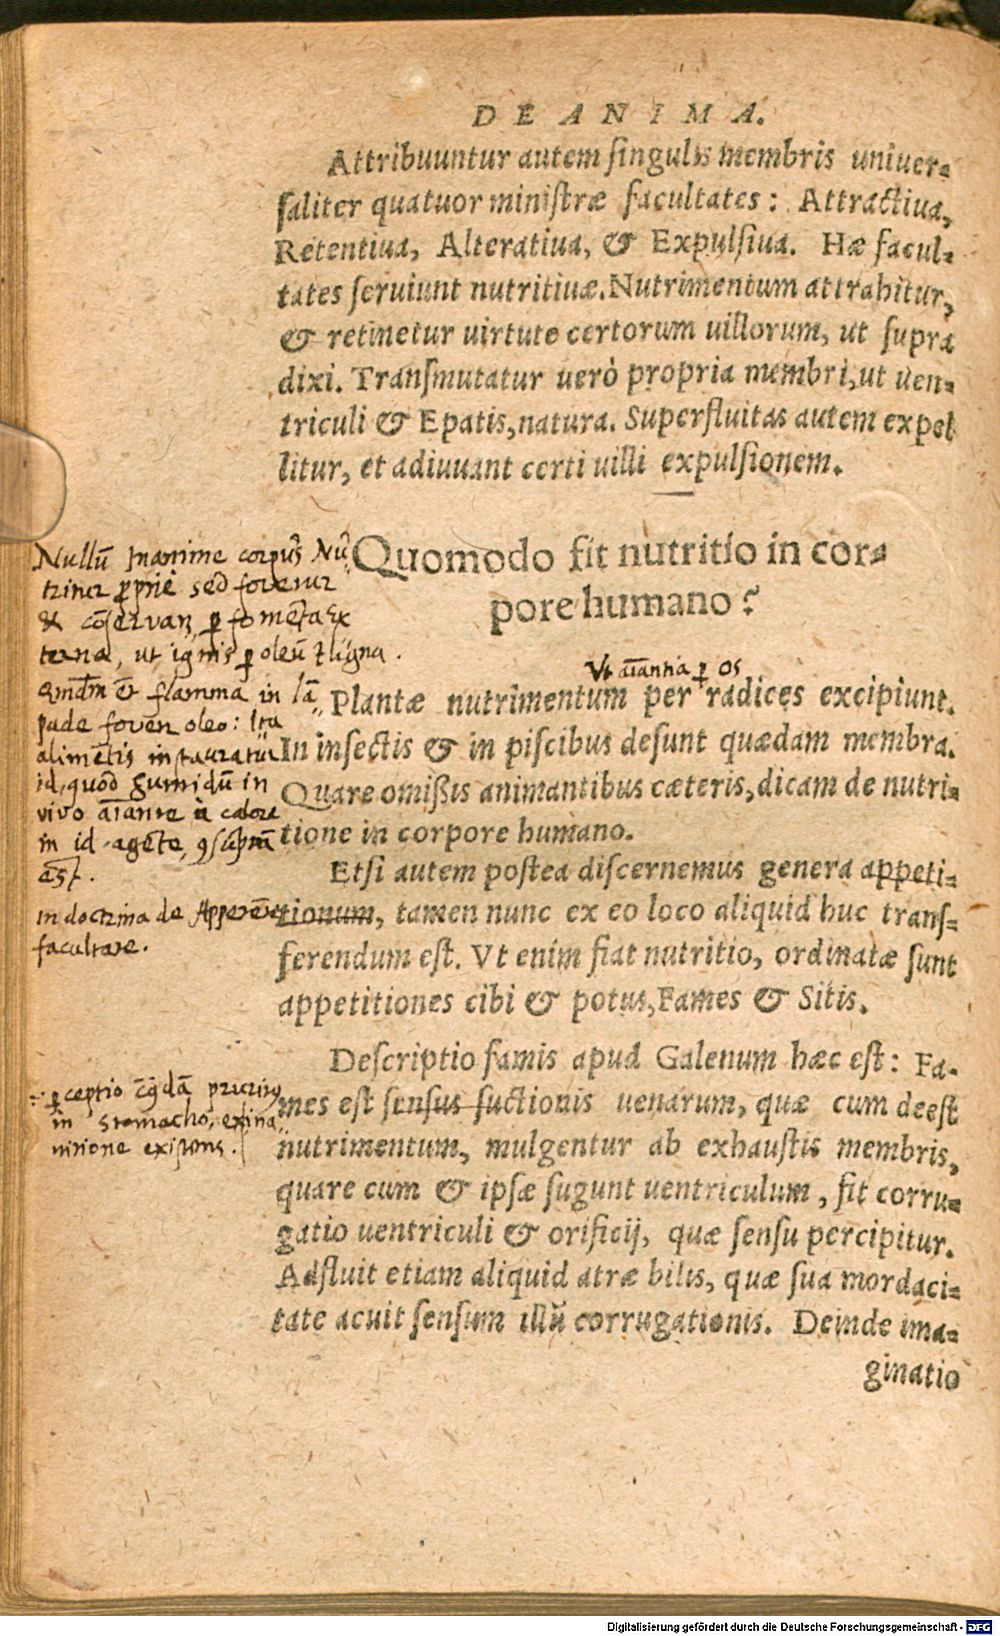 DE ANIMA.
Attribuuntur autem singulis membris uniuer-
saliter quatuor ministræ facultates: Attractiua,
Retentiua, Alteratiua, & Expulsiua. Hæ facul-
tates seruiunt nutritiuæ. Nutrimentum attrahitur,
& retinetur uirtute certorum uillorum, ut supra
dixi. Transmutatur uerò propria membri, ut uen-
triculi & Epatis, natura. Superfluitas autem expel
litur, et adiuuant certi uilli expulsionem.
Quomodo fit nutritio in cor-
pore humano?
Nullū Inanime corpus Nu
tritur ꝓprie sed fovetur
& cōservat ꝑ fomēta Ex
terna, ut ignis ꝑ oleū & ligna.
flamma in lā
pade foven oleo: Ita
alimētis instauratur
id, quod humidū in
vivo aīante à calore
in id agēte,
est.
in doctrina de Appetēte
facultate.
ꝑceptio pruritus
in stomacho, exina
nitione existens.
Ut aīantia ꝑ os
Plantæ nutrimentum per radices excipiunt.
In insectis & in piscibus desunt quædam membra.
Quare omißis animantibus cæteris, dicam de nutri-
tione in corpore humano.
Etsi autem postea discernemus genera appeti-
tionum, tamen nunc ex eo loco aliquid huc trans-
ferendum est. Vt enim fiat nutritio, ordinatæ sunt
appetitiones cibi & potus, Fames & Sitis.
Descriptio famis apud Galenum hæc est: Fa-
mes est sensus suctionis uenarum, quæ cum deest
nutrimentum, mulgentur ab exhaustis membris,
quare cum & ipsæ sugunt uentriculum, fit corru-
gatio uentriculi & orificij, quæ sensu percipitur.
Adfluit etiam aliquid atræ bilis, quæ sua mordaci-
tate acuit sensum illū corrugationis. Deinde ima-
ginatio
Digitalisierung gefördert durch die Deutsche Forschungsgemeinschaft - DFG